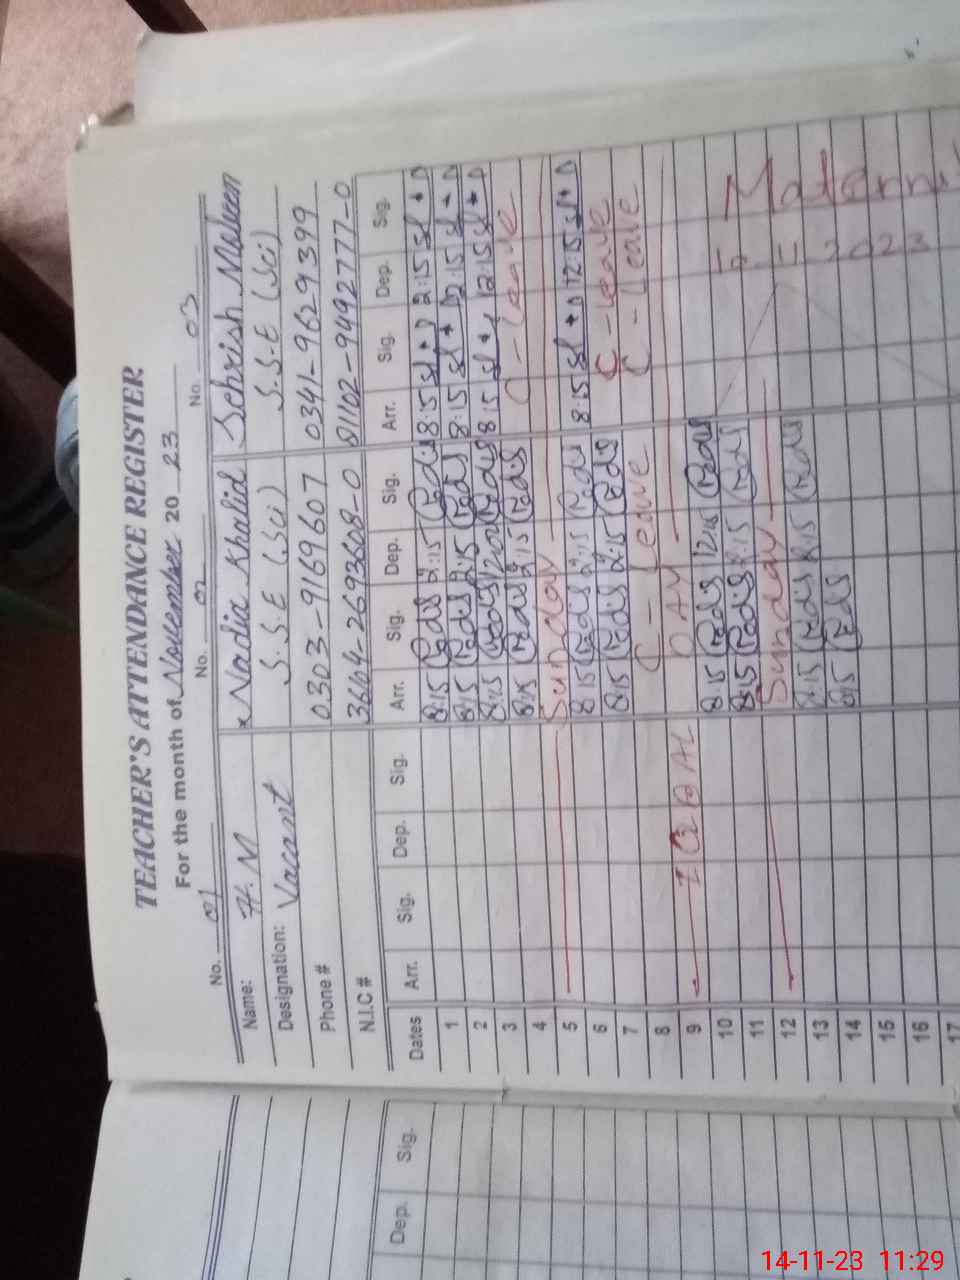 TEACHER'S ATTENDANCE REGISTER
For the month of November 20 23
No. 01 No. 02 No. 03
Name: H.M Nadia Khalid Sehrish Maheen
Designation: Vacant S.S.E (Sci) S.S.E (Sci)
Phone # 0303-9169607 0341-9629399
N.I.C # 36404-2693608-0 81102-9492777-0
Dates Arr. Sig. Dep. Sig. Arr. Sig. Dep. Sig. Arr. Sig. Dep. Sig.
1 8:15 2:15 8:15 2:15
2 8:15 2:15 8:15 2:15
3 8:15 1200 8:15 12:15
4 8:15 2:15 C - Leave
5 Sunday
6 8:15 2:15 8:15 12:15
7 8:15 2:15 C - Leave
8 C - Leave C - Leave
9 IQBAL DAY
10 8:15 12:15
11 8:15 2:15
12 Sunday
13 8:15 2:15
14 8:15
15
16 2023
17
Dep. Sig.
14-11-23 11:29